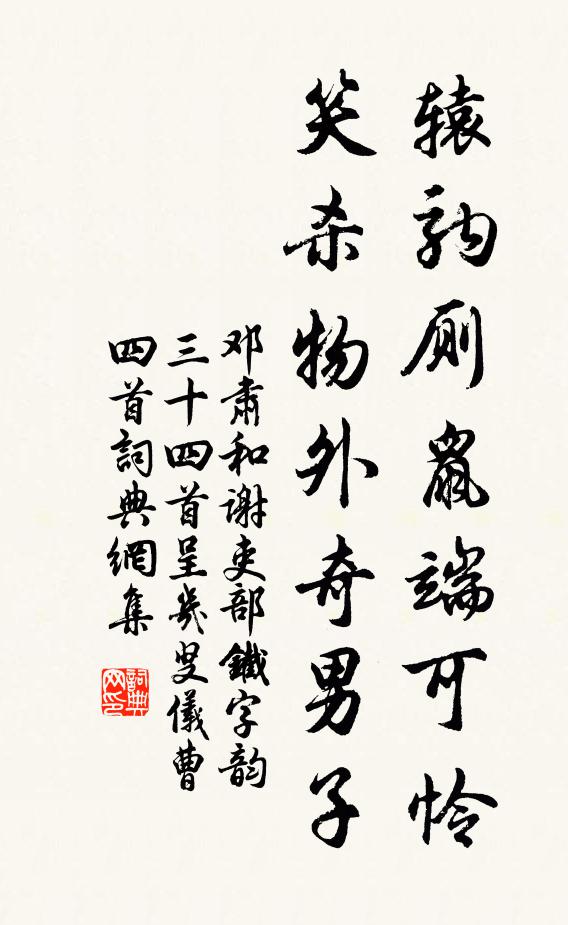 辕驹厕鼠端可怜
笑杀物外奇男子
邓肃和谢吏部鐵字韵
三十四首呈幾叟儀曹
四首詞典網集
詞典网印